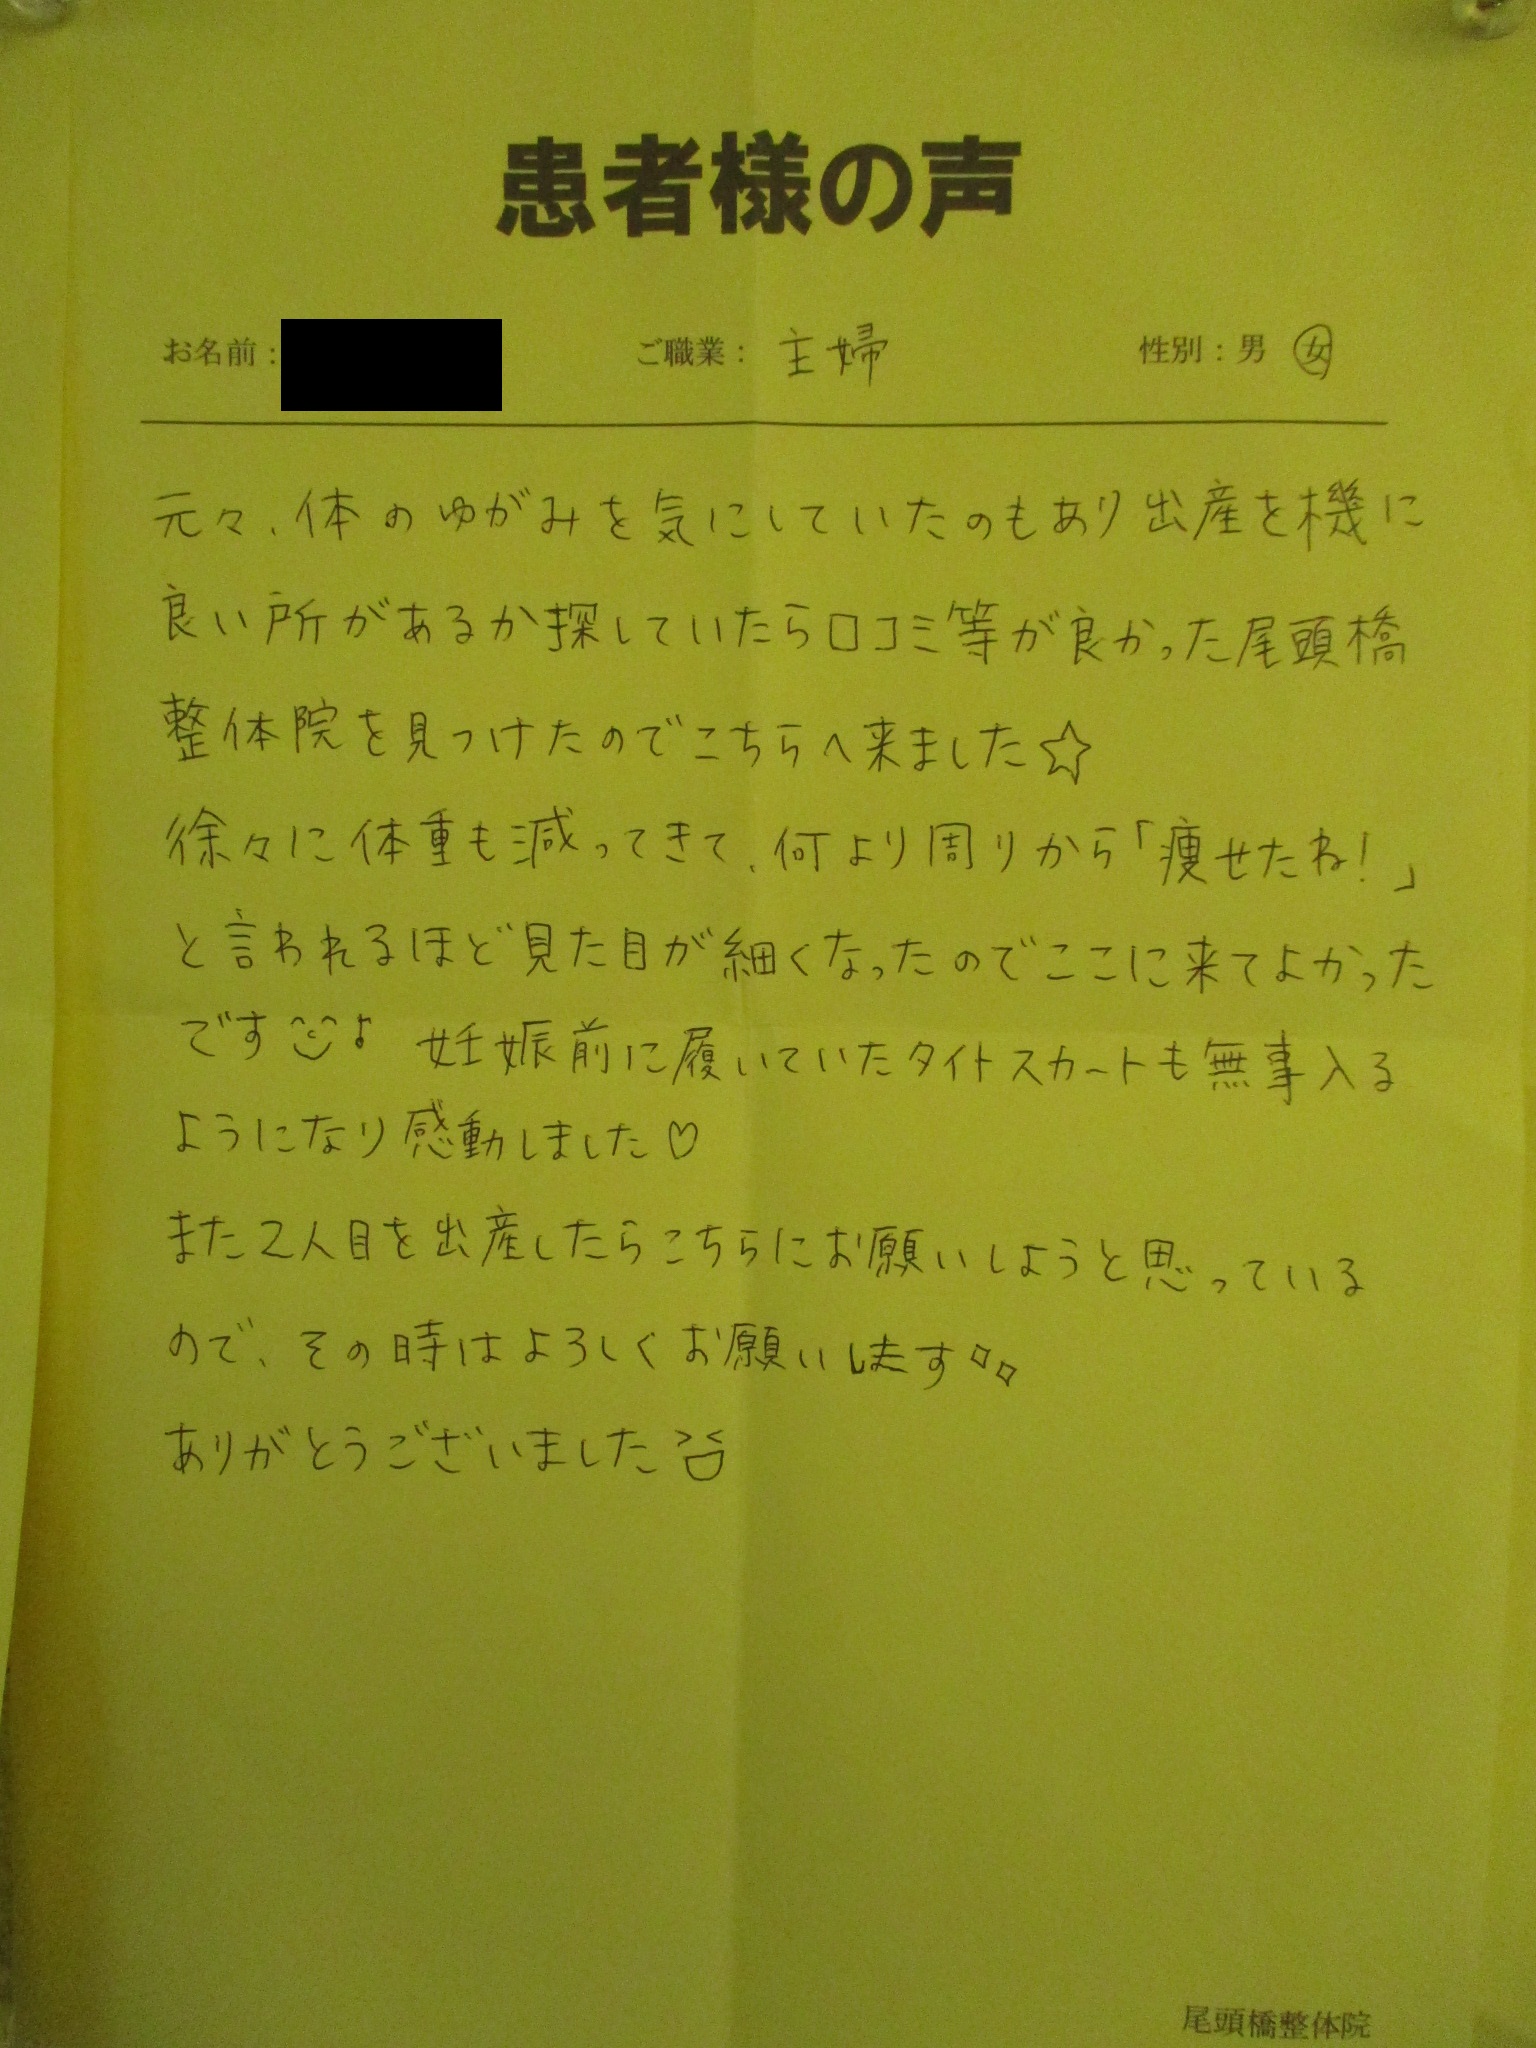 患者様の声
お名前： ご職業： 主婦 性別：男 女
元々、体のゆがみを気にしていたのもあり出産を機に
良い所があるか探していたら口コミ等が良かった尾頭橋
整体院を見つけたのでこちらへ来ました☆
徐々に体重も減ってきて、何より周りから「痩せたね！」
と言われるほど見た目が細くなったのでここに来てよかった
です♪ 妊娠前に履いていたタイトスカートも無事入る
ようになり感動しました♡
また2人目を出産したらこちらにお願いしようと思っている
ので、その時はよろしくお願いします
ありがとうございました
尾頭橋整体院